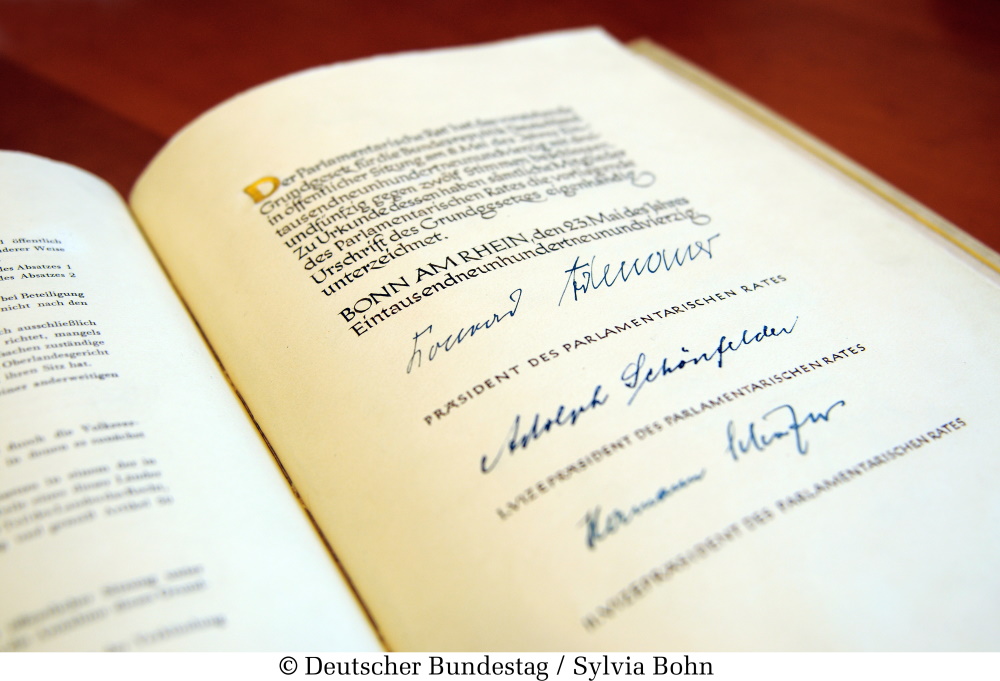 l öffentlich
nderer Weise
des Absatzes 1
des Absatzes 2
bei Beteiligung
nicht nach den
ch ausschließlich
richtet, mangels
sachen zuständige
Oberlandesgericht
ihren Sitz hat.
einer anderweitigen
durch die
in denen es zunächst
Der Parlamentarische Rat hat das vorstehende
Grundgesetz für die Bundesrepublik Deutschland
in öffentlicher Sitzung am 8. Mai des Jahres Ein-
tausendneunhundertneunundvierzig mit drei-
undfünfzig gegen zwölf Stimmen beschlossen.
Zu Urkunde dessen haben sämtliche Mitglieder
des Parlamentarischen Rates die vorliegende
Urschrift des Grundgesetzes eigenhändig
unterzeichnet.
BONN AM RHEIN, den 23. Mai des Jahres
Eintausendneunhundertneunundvierzig
Konrad Adenauer
PRÄSIDENT DES PARLAMENTARISCHEN RATES
Adolph Schönfelder
I. VIZEPRÄSIDENT DES PARLAMENTARISCHEN RATES
Hermann Schäfer
II. VIZEPRÄSIDENT DES PARLAMENTARISCHEN RATES
© Deutscher Bundestag / Sylvia Bohn